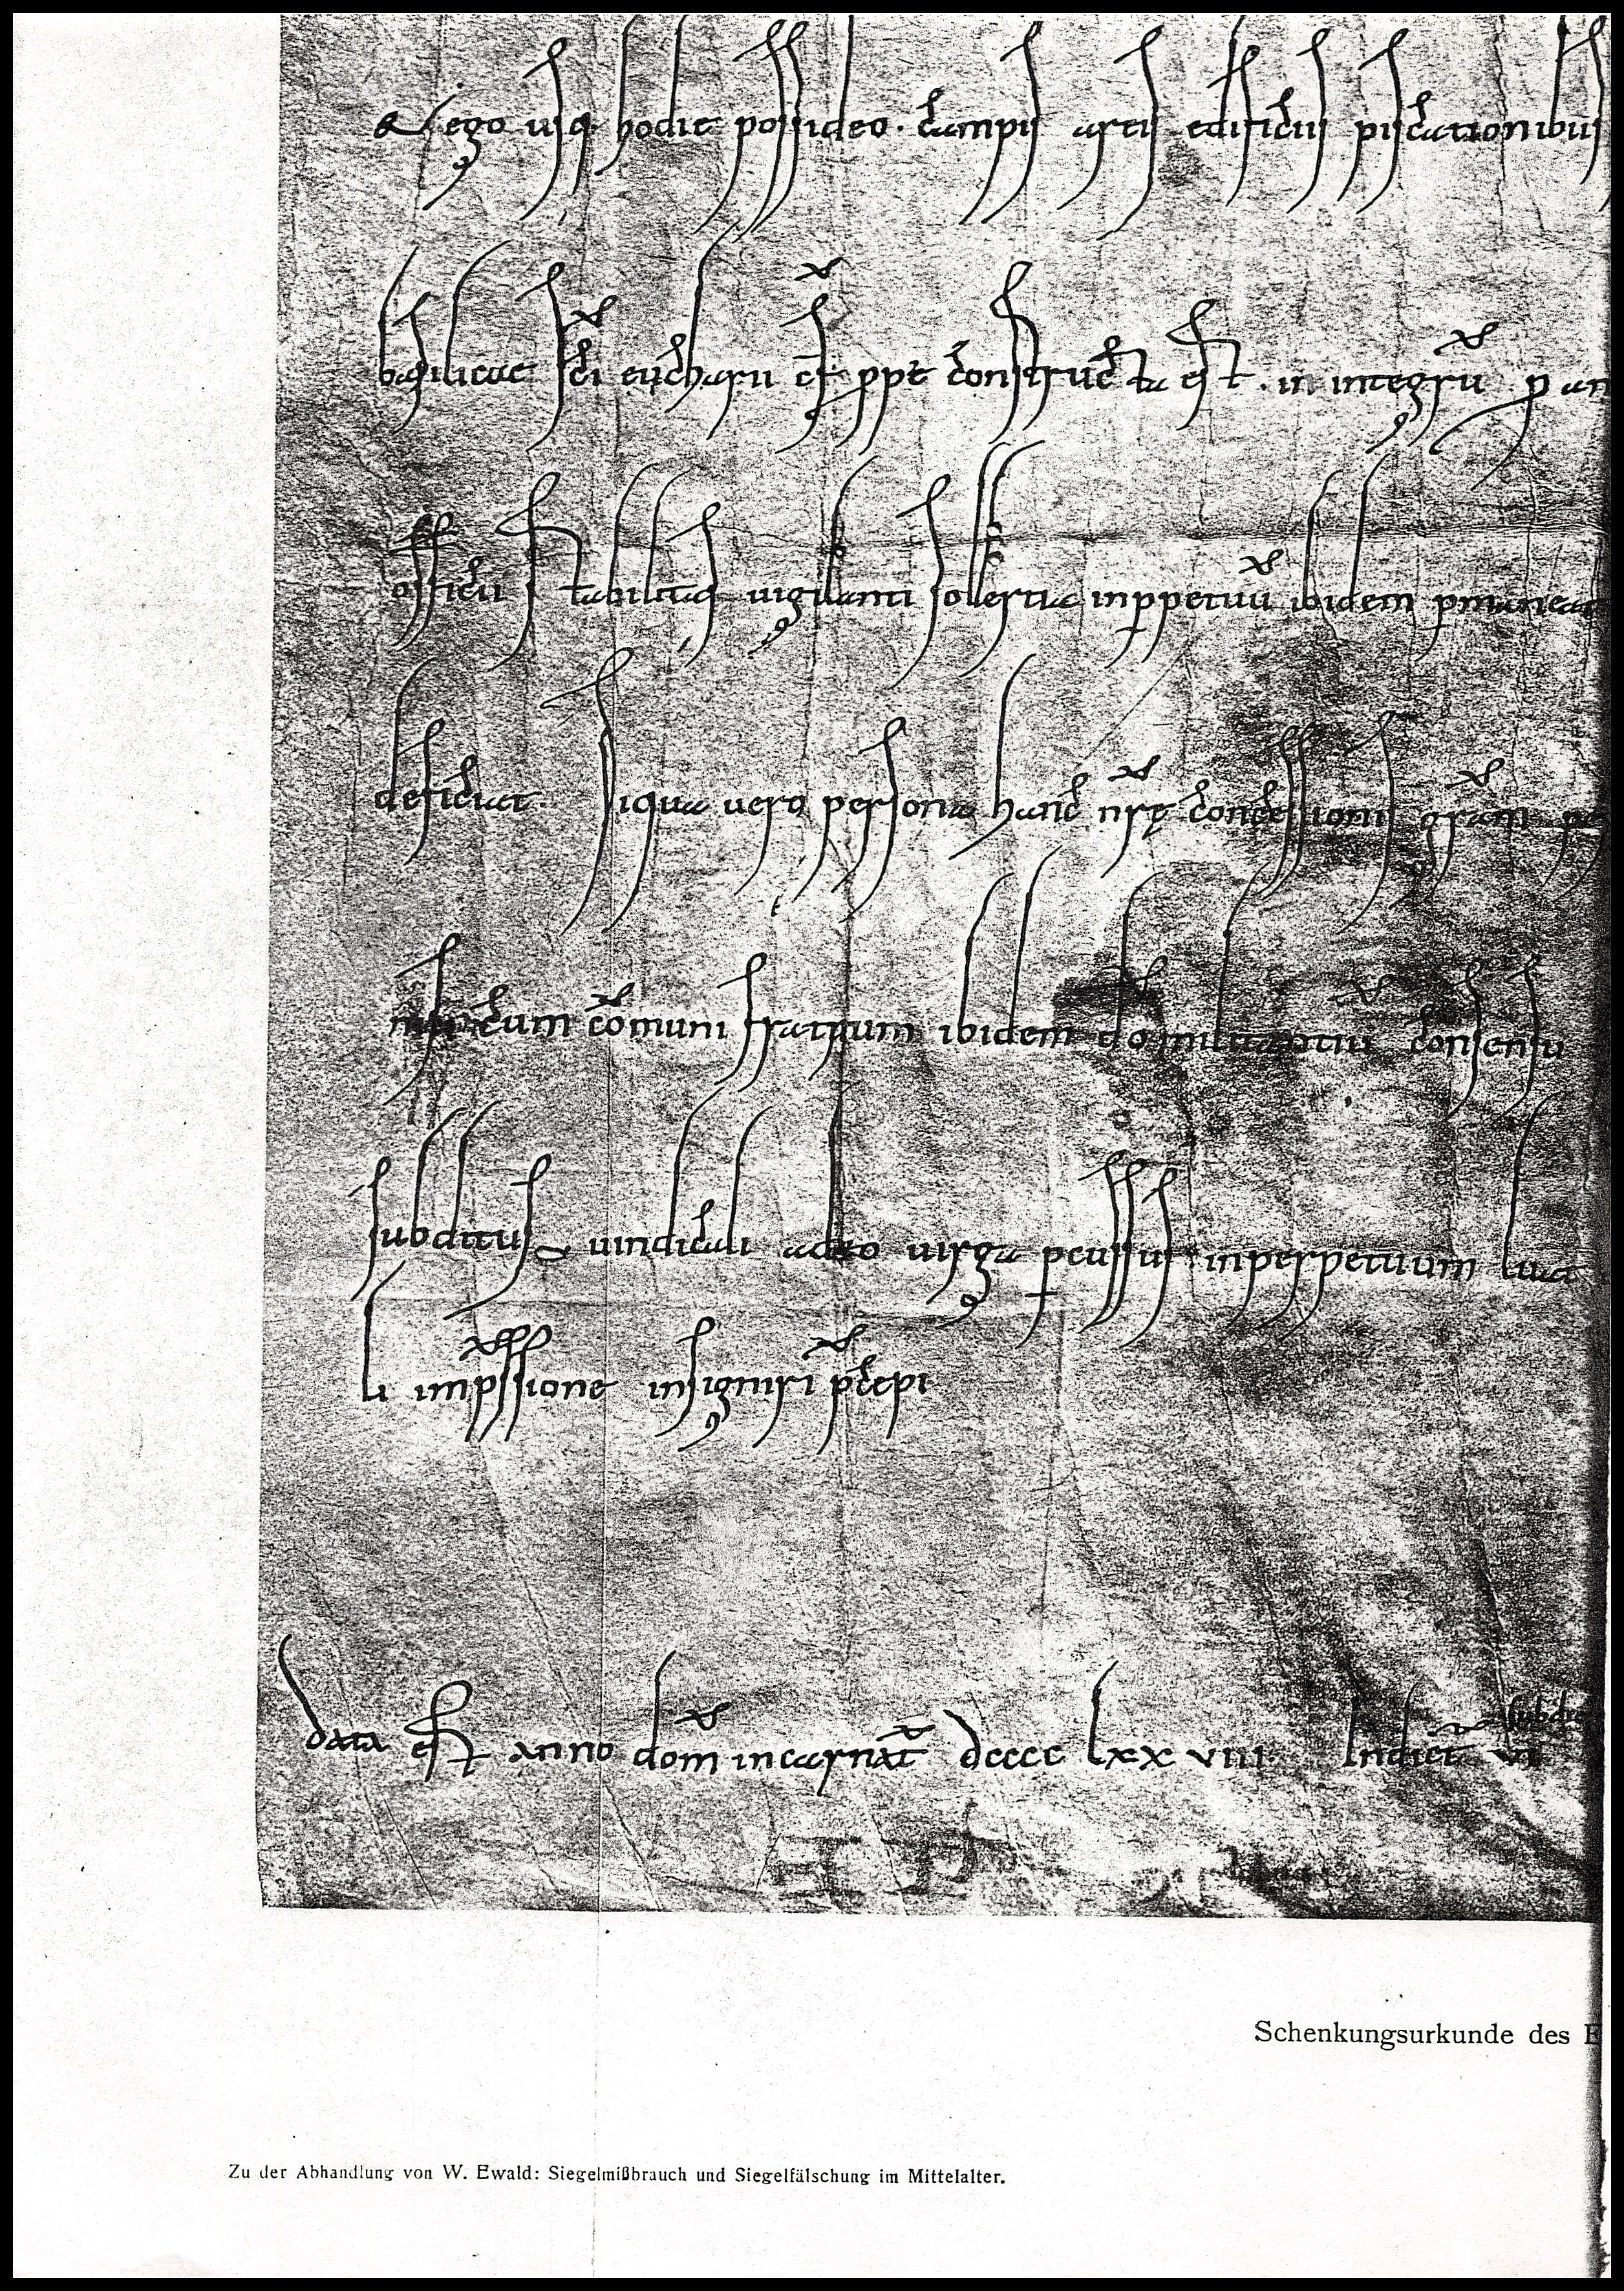 & ego usq. hodie possideo. campis areis edificiis piscationibus
basilicae sci eucharii cf ppe constructa est. in integrũ p an
officii stabilitas vigilanti solertia inppetuũ ibidem pmaneat
deficiat. Siqua vero persona hanc nrę concessionis grãm
cum cõmuni fratrum ibidem dõ militantiũ consensu
subditus vindicali adeo virga pcussus inperpetuum luat
li impssione insigniri pcepi
data est anno dom̃ incarnat̃ dcccc lxx viii Indict̃ vi
Schenkungsurkunde des E
Zu der Abhandlung von W. Ewald: Siegelmißbrauch und Siegelfälschung im Mittelalter.